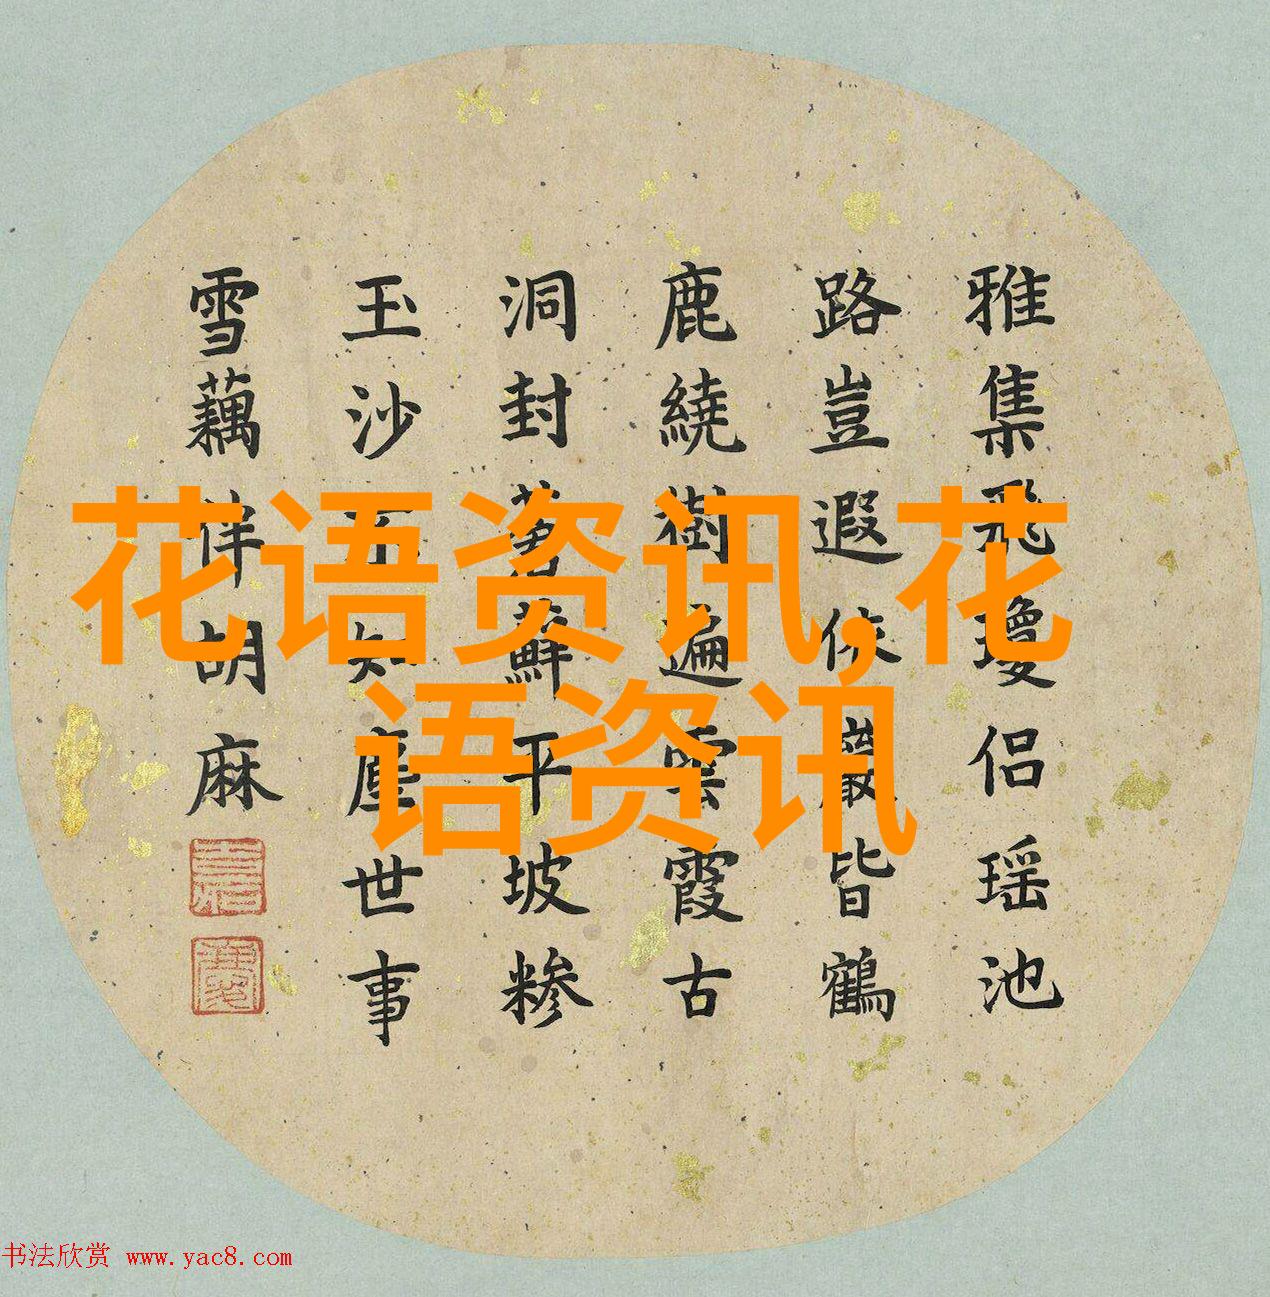 花语资讯,花
语资讯
雅集飛瓊侶瑶池
路豈遐依巖皆鶴
鹿繞樹遍雲霞古
洞封蘚平坡糁
玉沙不知塵世事
雪藕伴胡麻
书法欣赏 www.yac8.com